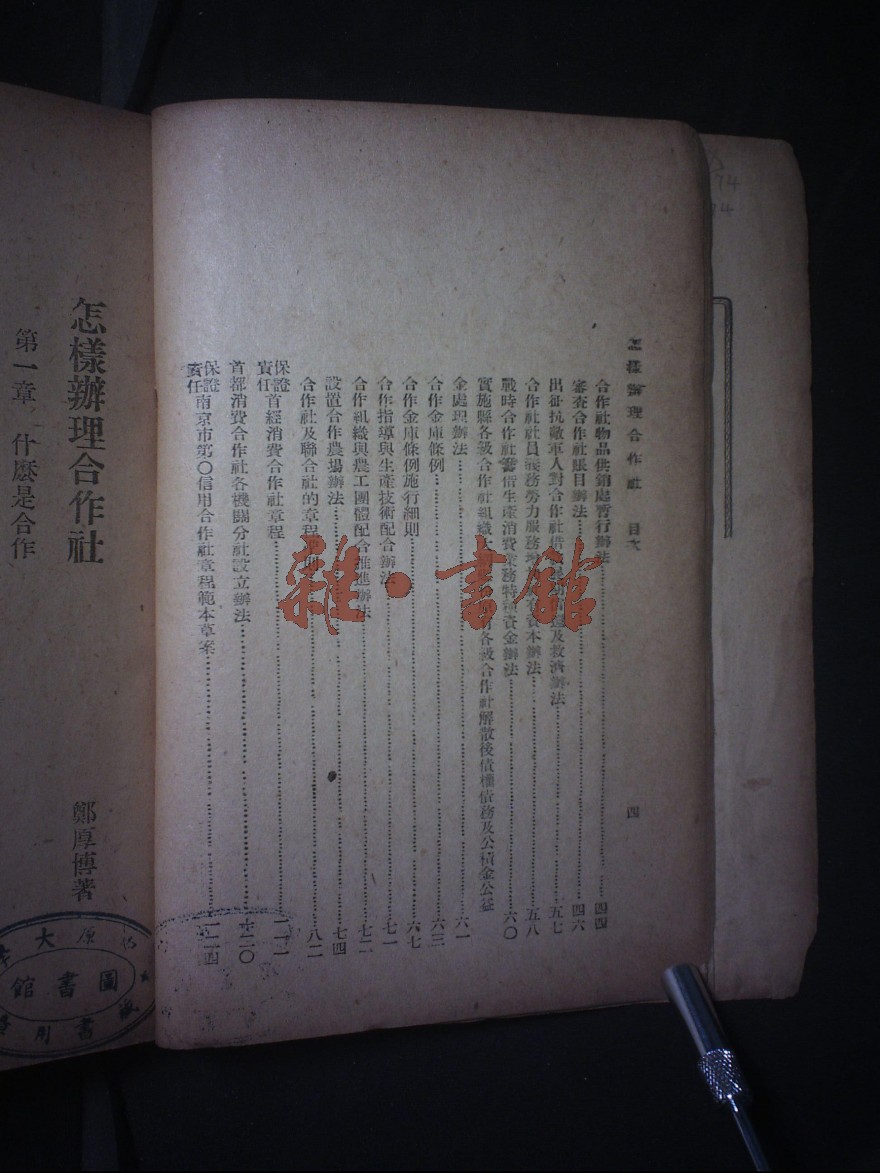 怎樣辦理合作社 目次 四
合作社物品供銷處暫行辦法 四四
審查合作社賬目辦法 四六
出征抗敵軍人對合作社借 及救濟辦法 五七
合作社社員義務勞力服務 資本辦法 五八
戰時合作社 生產消費業務特種資金辦法 六〇
實施縣各級合作社組織 各級合作社解散後債權債務及公積金公益
金處理辦法 六一
合作金庫條例 六三
合作金庫條例施行細則 六七
合作指導與生產技術配合辦法 七一
合作組織與農工團體配合推進辦法 七二
設置合作農場辦法 七四
合作社及聯合社的章程 則 八二
保證責任首經消費合作社章程
首都消費合作社各機關分社設立辦法
保證責任南京市第〇信用合作社章程範本草案 一二四
怎樣辦理合作社
鄭厚博著
第一章 什麼是合作
圖書館
雜·書館